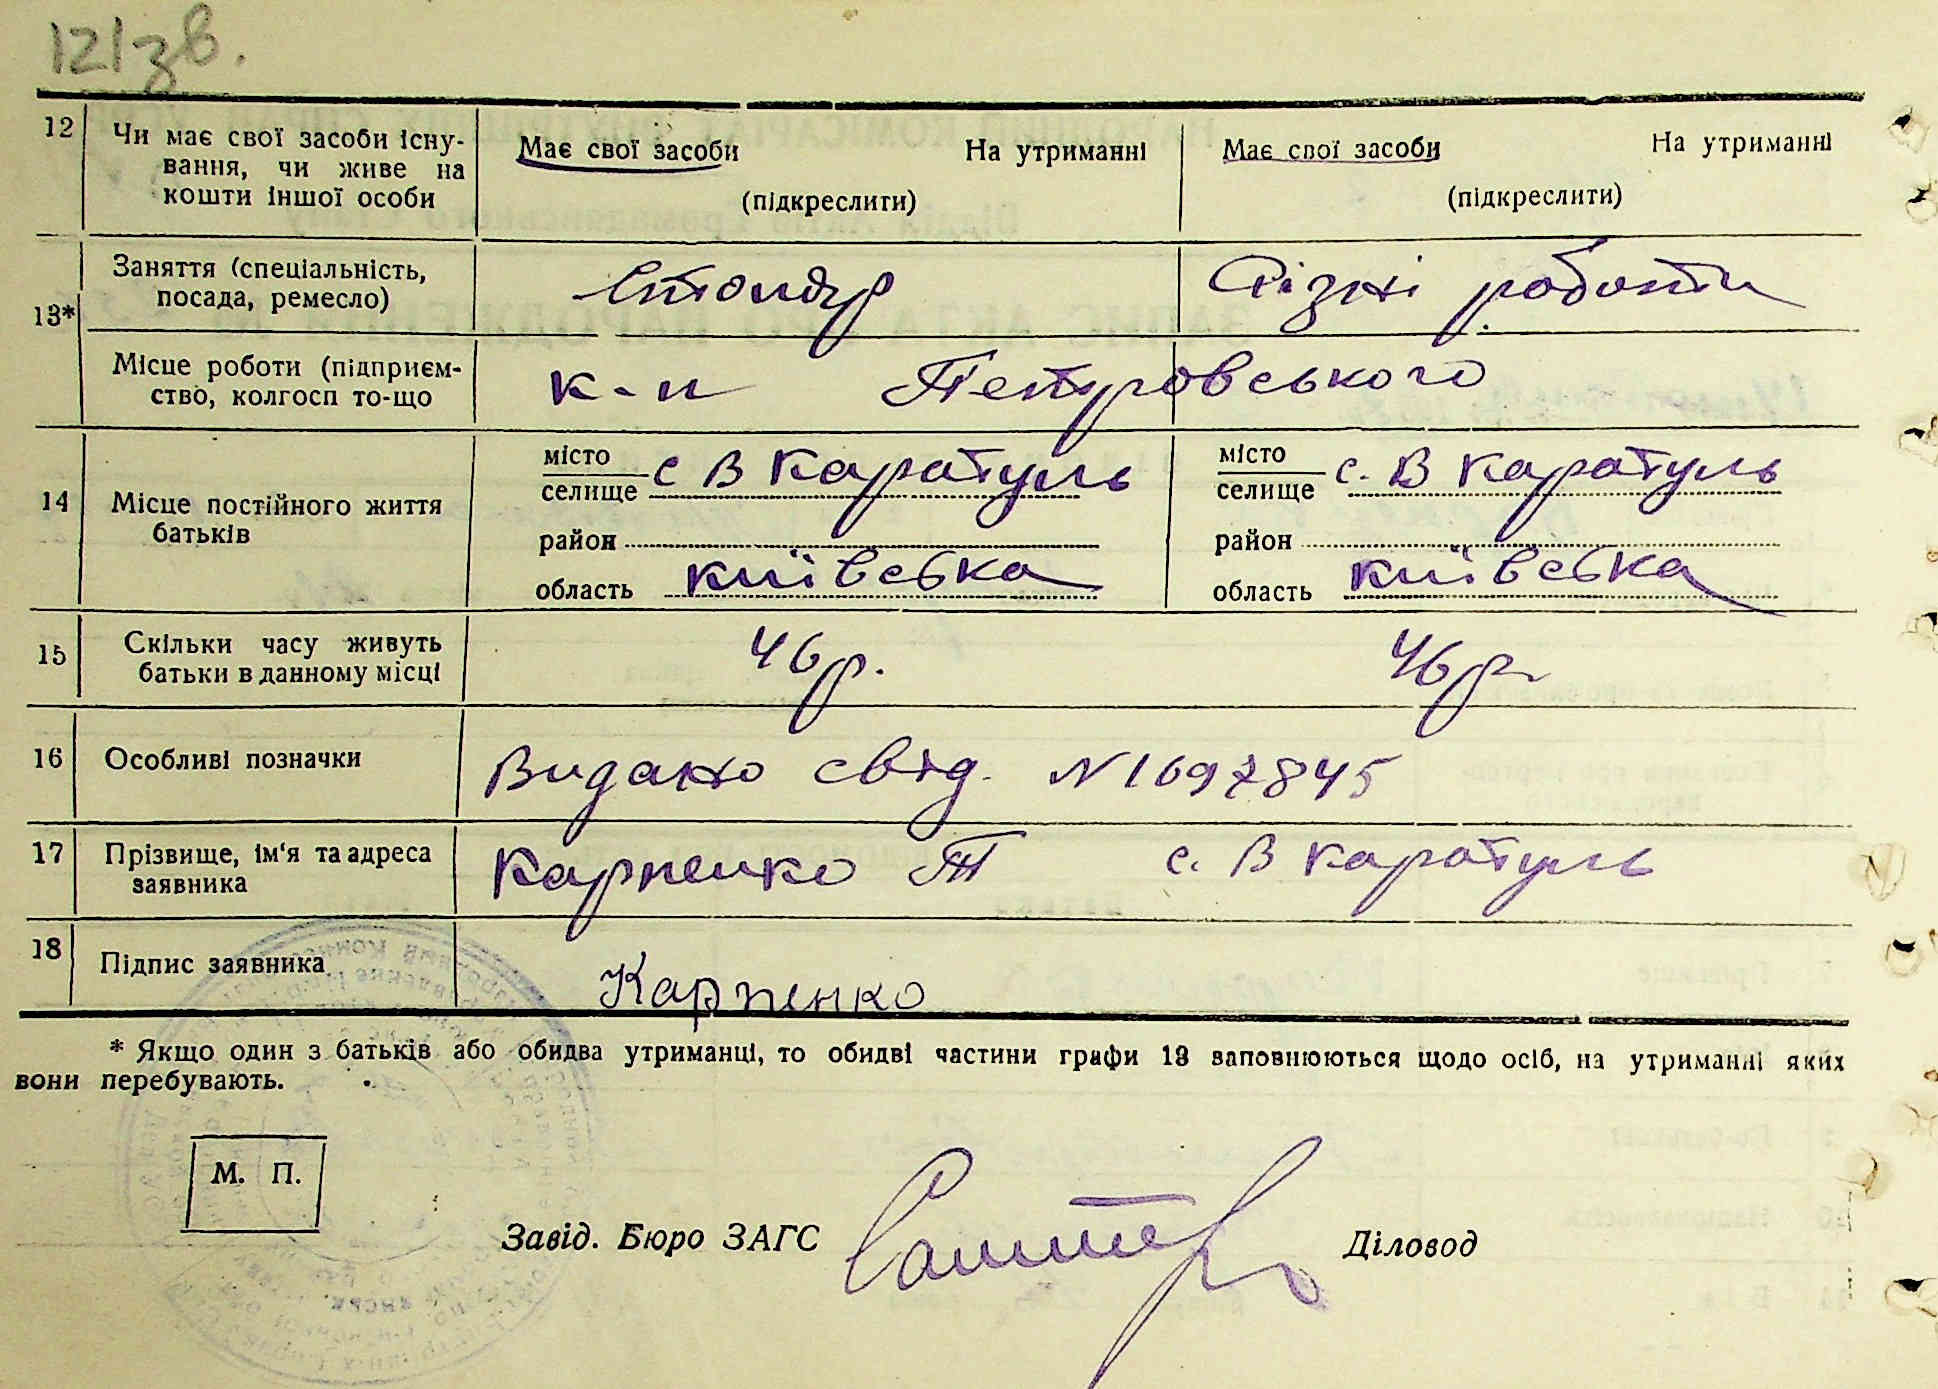 121 зв.
12 Чи має свої засоби існу- Має свої засоби На утриманні Має свої засоби На утриманні
вання, чи живе на
кошти іншої особи (підкреслити) (підкреслити)
13* Заняття (спеціальність, Різні роботи
посада, ремесло)
Місце роботи (підприєм- к-п Петровського
ство, колгосп то-що
14 Місце постійного життя батьків
місто
селище с В Каратуль
місто
селище с. В Каратуль
район район
область київська область київська
15 Скільки часу живуть 46 р. 46 р.
батьки в данному місці
16 Особливі позначки Видано свід. N 1697845
17 Прізвище, ім'я та адреса Карпенко Т с. В Каратуль
заявника
18 Підпис заявника Карпенко
* Якщо один з батьків або обидва утриманці, то обидві частини графи 13 заповнюються щодо осіб, на утриманні яких
вони перебувають.
М. П.
Завід. Бюро ЗАГС Діловод